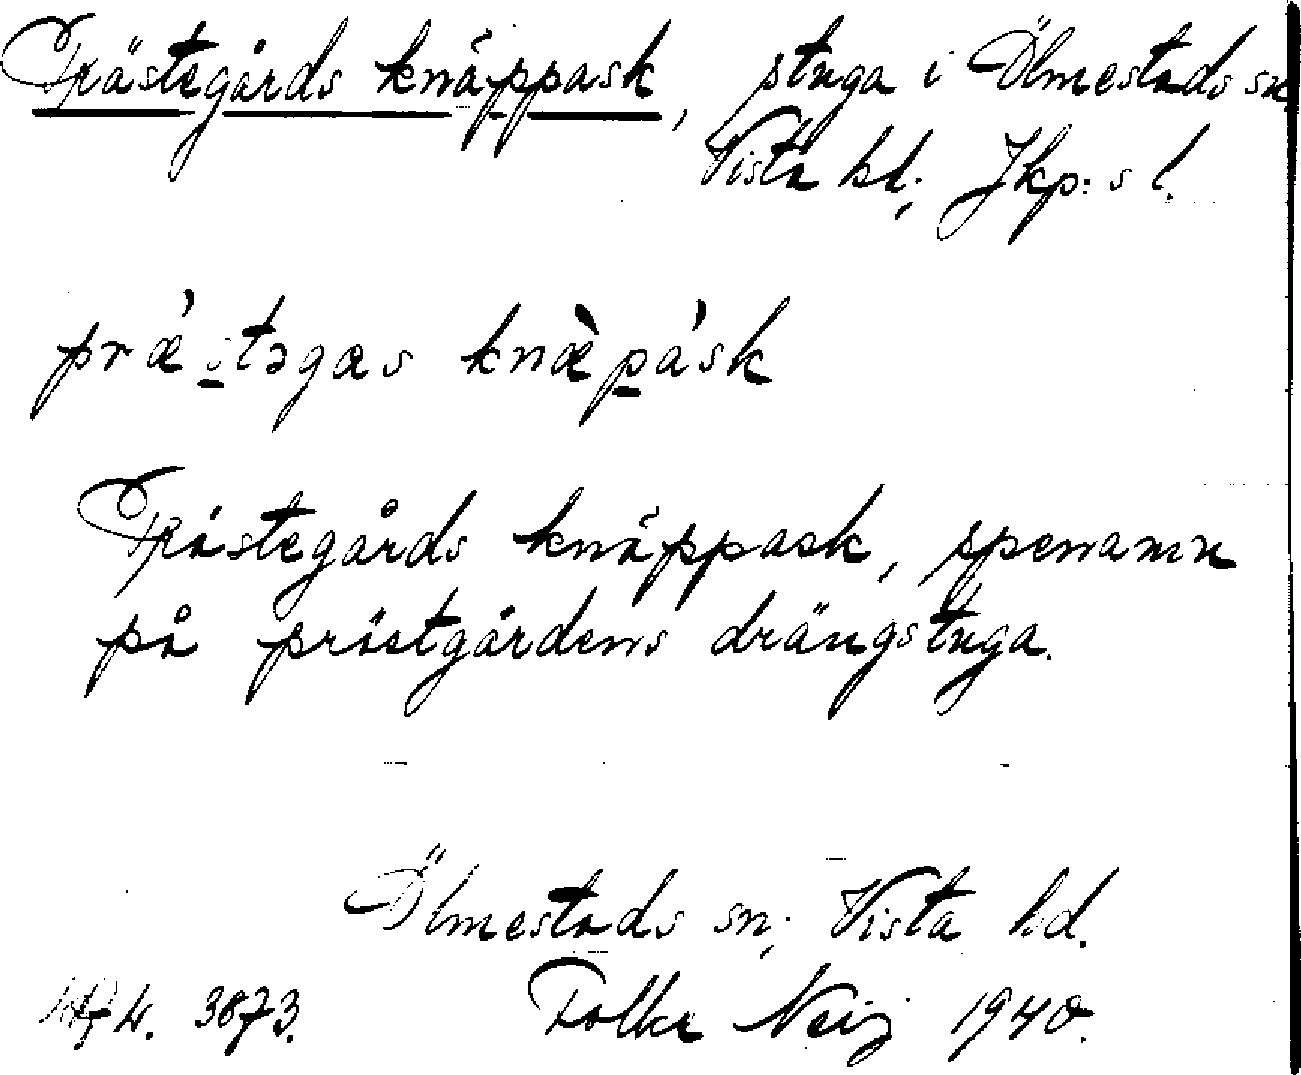 Prästegårds knäppask, stuga i Ölmestads sn
Vista hd; Jkp:s l.
præ´stəgas knæ`pa´sk
Prästegårds knäppask, spenamn
på prästgårdens drängstuga.
Ölmestads sn; Vista hd.
3873. Folke Neij 1940.